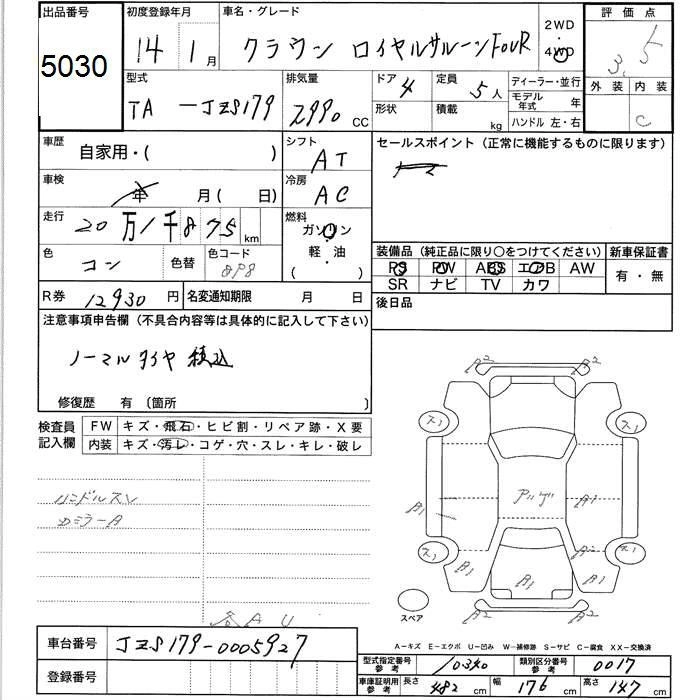 出品番号
5030
初度登録年月
14 1月
車名・グレード
クラウン ロイヤルサルーンFOUR
2WD
4WD
評価点
3.5
外装 内装
C
型式
TA-JZS179
排気量
2990 CC
ドア 4
形状
定員 5人
積載 kg
ディーラー・並行
モデル年式 年
ハンドル 左・右
車歴
自家用・( )
シフト
AT
セールスポイント (正常に機能するものに限ります)
車検
年 月( 日)
冷房
AC
走行
20万1千875km
燃料
ガソリン
・
軽油
( )
色
コン
色替
色コード
8P8
装備品 (純正品に限り〇をつけてください)
PS PW ABS エアB AW
SR ナビ TV カワ
新車保証書
有・無
R券 12930円
名変通知期限 月 日
後日品
注意事項申告欄 (不具合内容等は具体的に記入して下さい)
ノーマルタイヤ 積込
修復歴 有 〔箇所 〕
検査員記入欄
FW キズ・飛石・ヒビ割・リペア跡・X要
内装 キズ・汚レ・コゲ・穴・スレ・キレ・破レ
ハンドルスレ
Dミラー A
各 A U
A2 A2
ス1 ス1
アゲ
A1 A1
ス1 ス1
A1 A1 A1 A1
A2 A2
スペア
A−キズ E−エクボ U−凹み W−補修跡 S−サビ C−腐食 XX−交換済
車台番号 JZS179-0005927
登録番号
型式指定番号 参考 10340
類別区分番号 参考 0017
車庫証明用 参考 長さ 482cm 幅 176cm 高さ 147cm